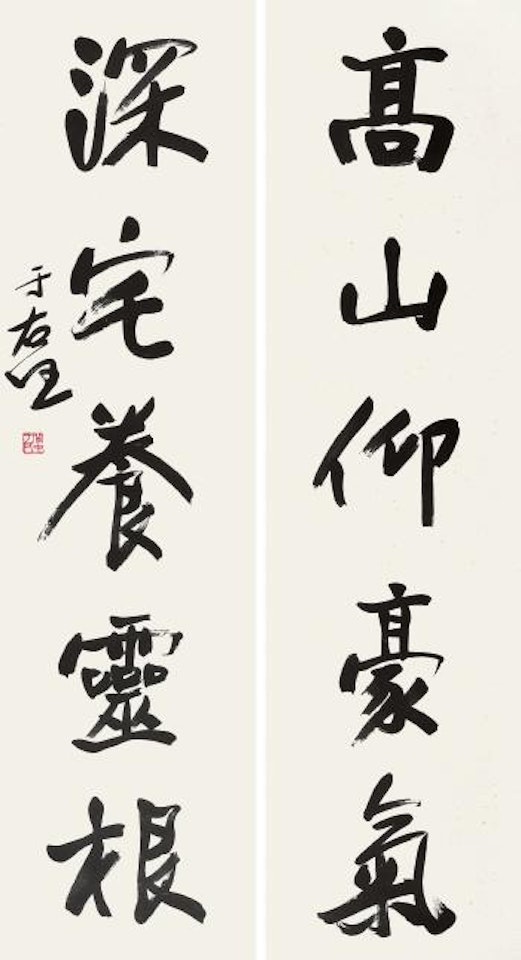 高山仰豪氣
深宅養靈根
于右任